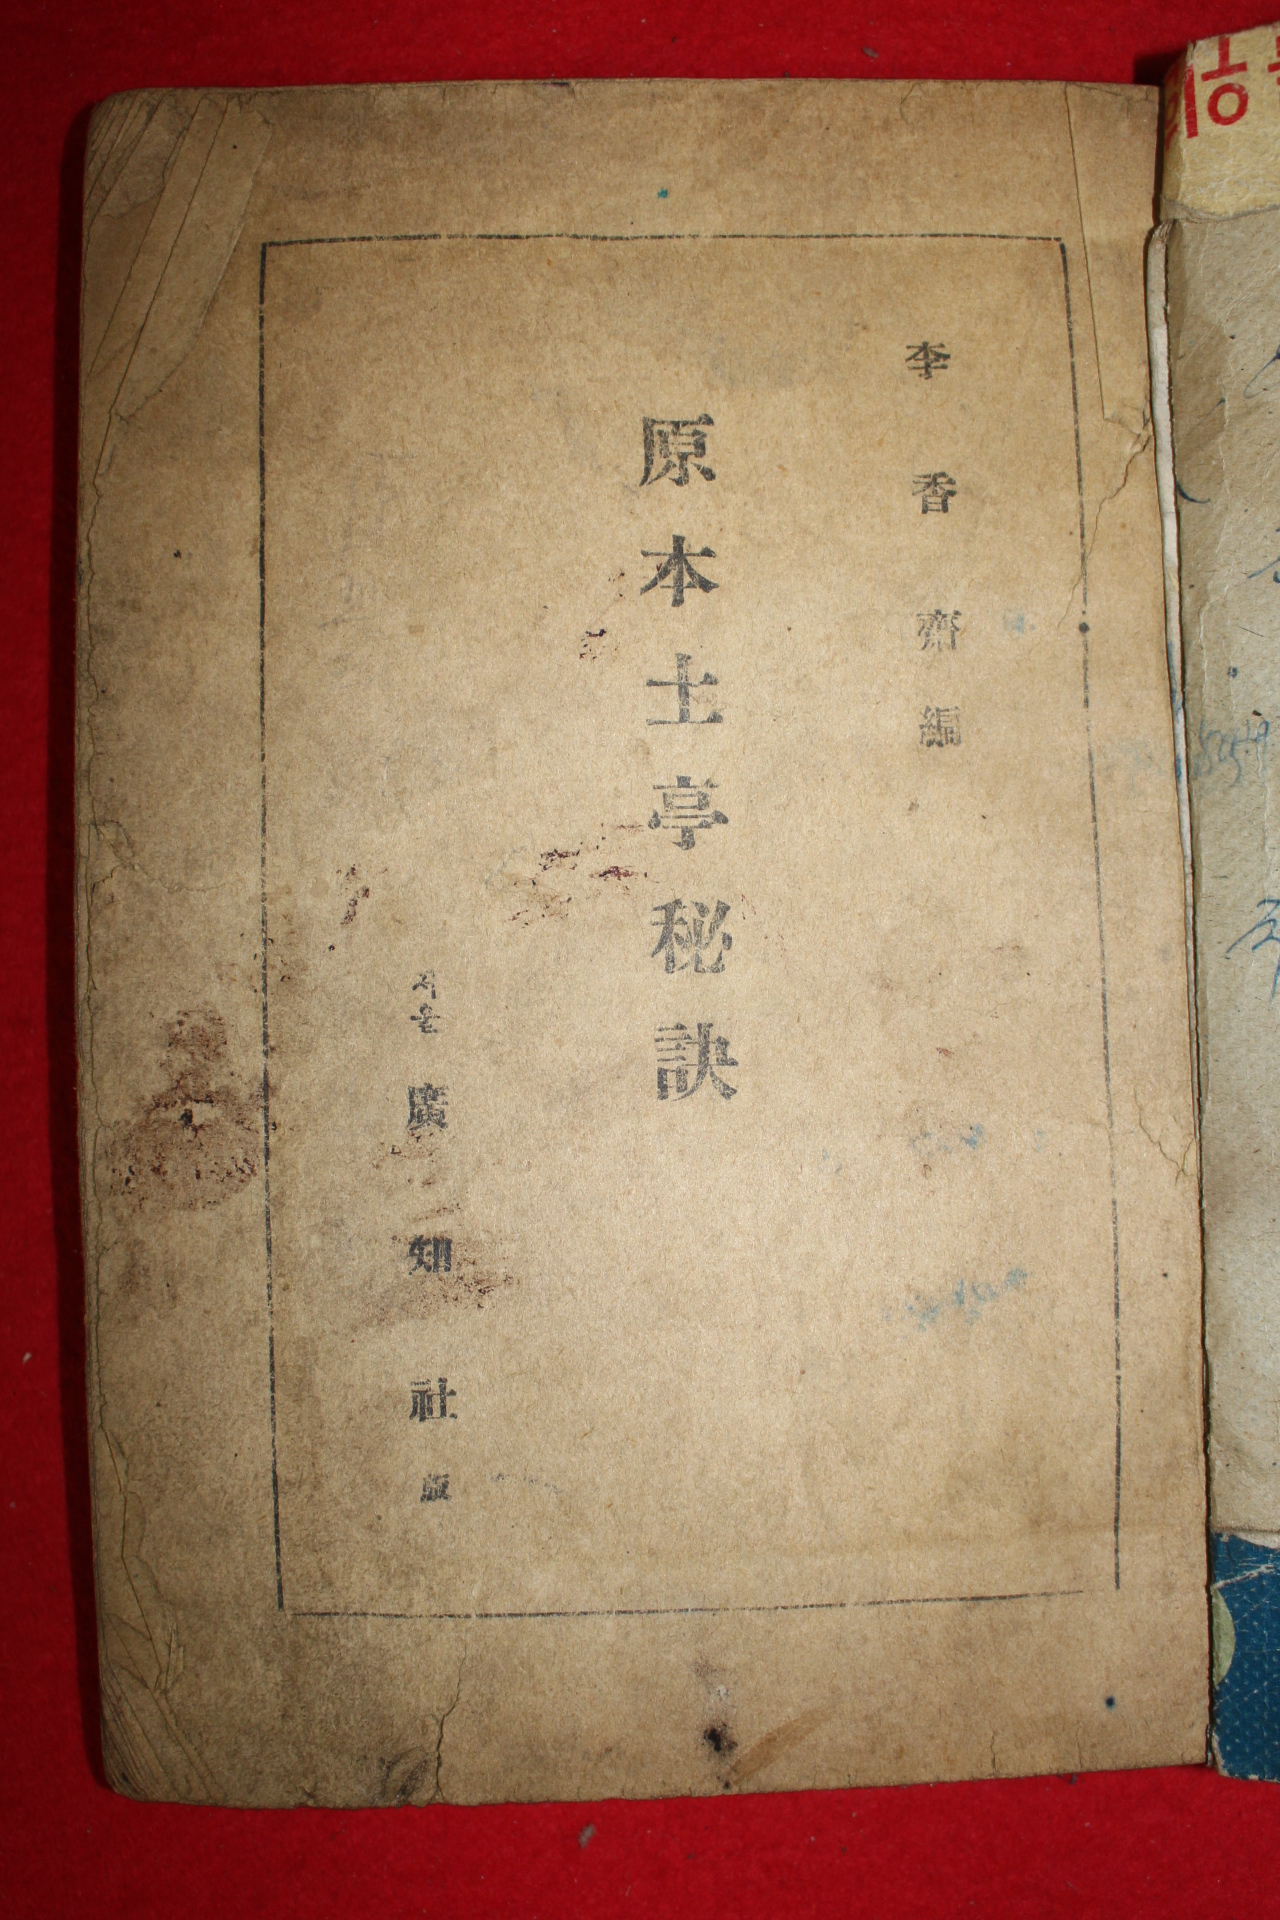 李香齋編
原本土亭秘訣
서울 廣知社 版